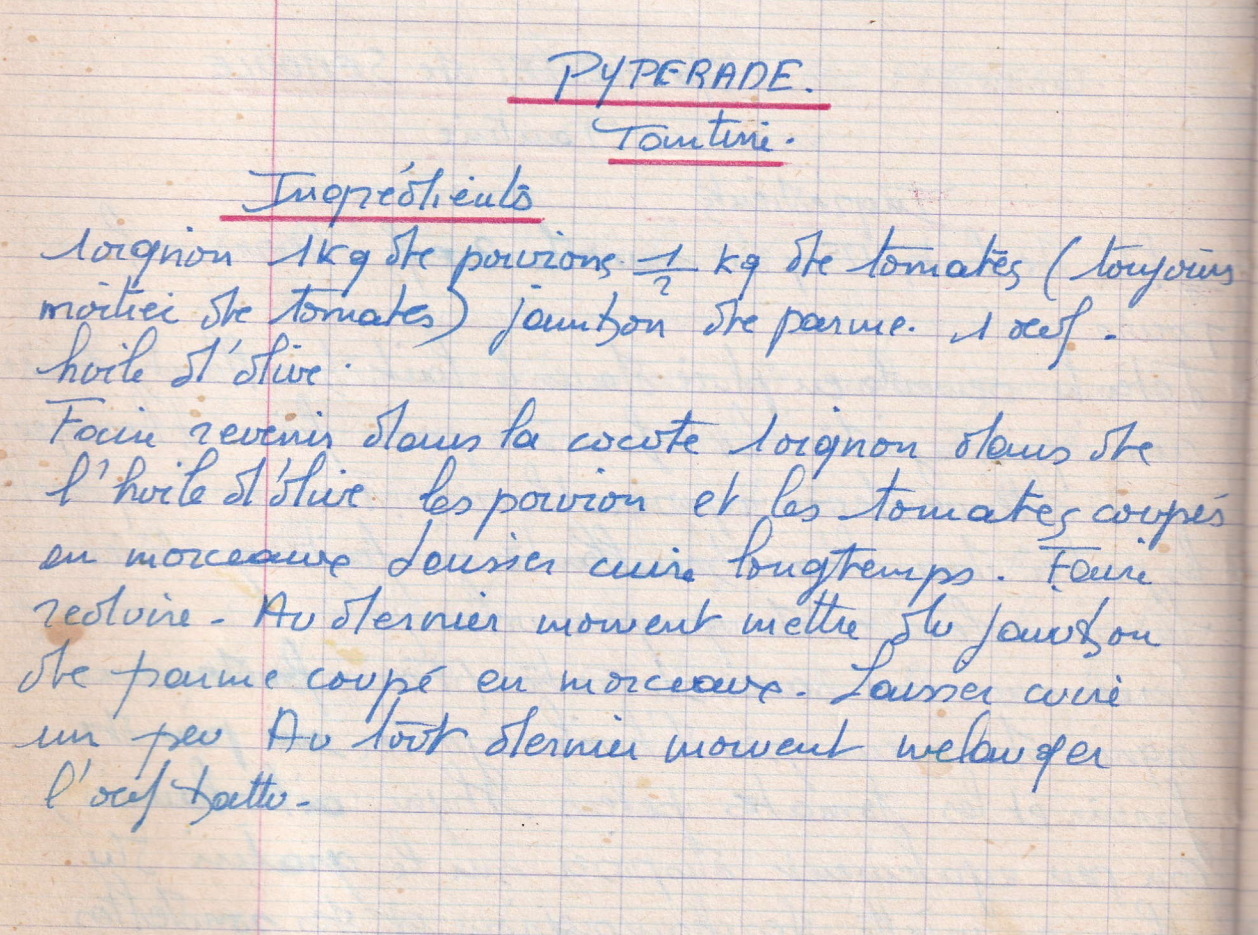 PYPERADE.
Tantine.
Ingrédients
1 oignon 1kg de poivrons 1/2 kg de tomates (toujours
moitié de tomates) jambon de parme. 1 oeuf.
huile d'olive.
Faire revenir dans la cocote 1 oignon dans de
l'huile d'olive les poivron et les tomates coupés
en morceaux Laisser cuire longtemps. Faire
reduire - Au dernier moment mettre du jambon
de parme coupé en morceaux. Laisser cuire
un peu Au tout dernier moment melanger
l'oeuf battu-